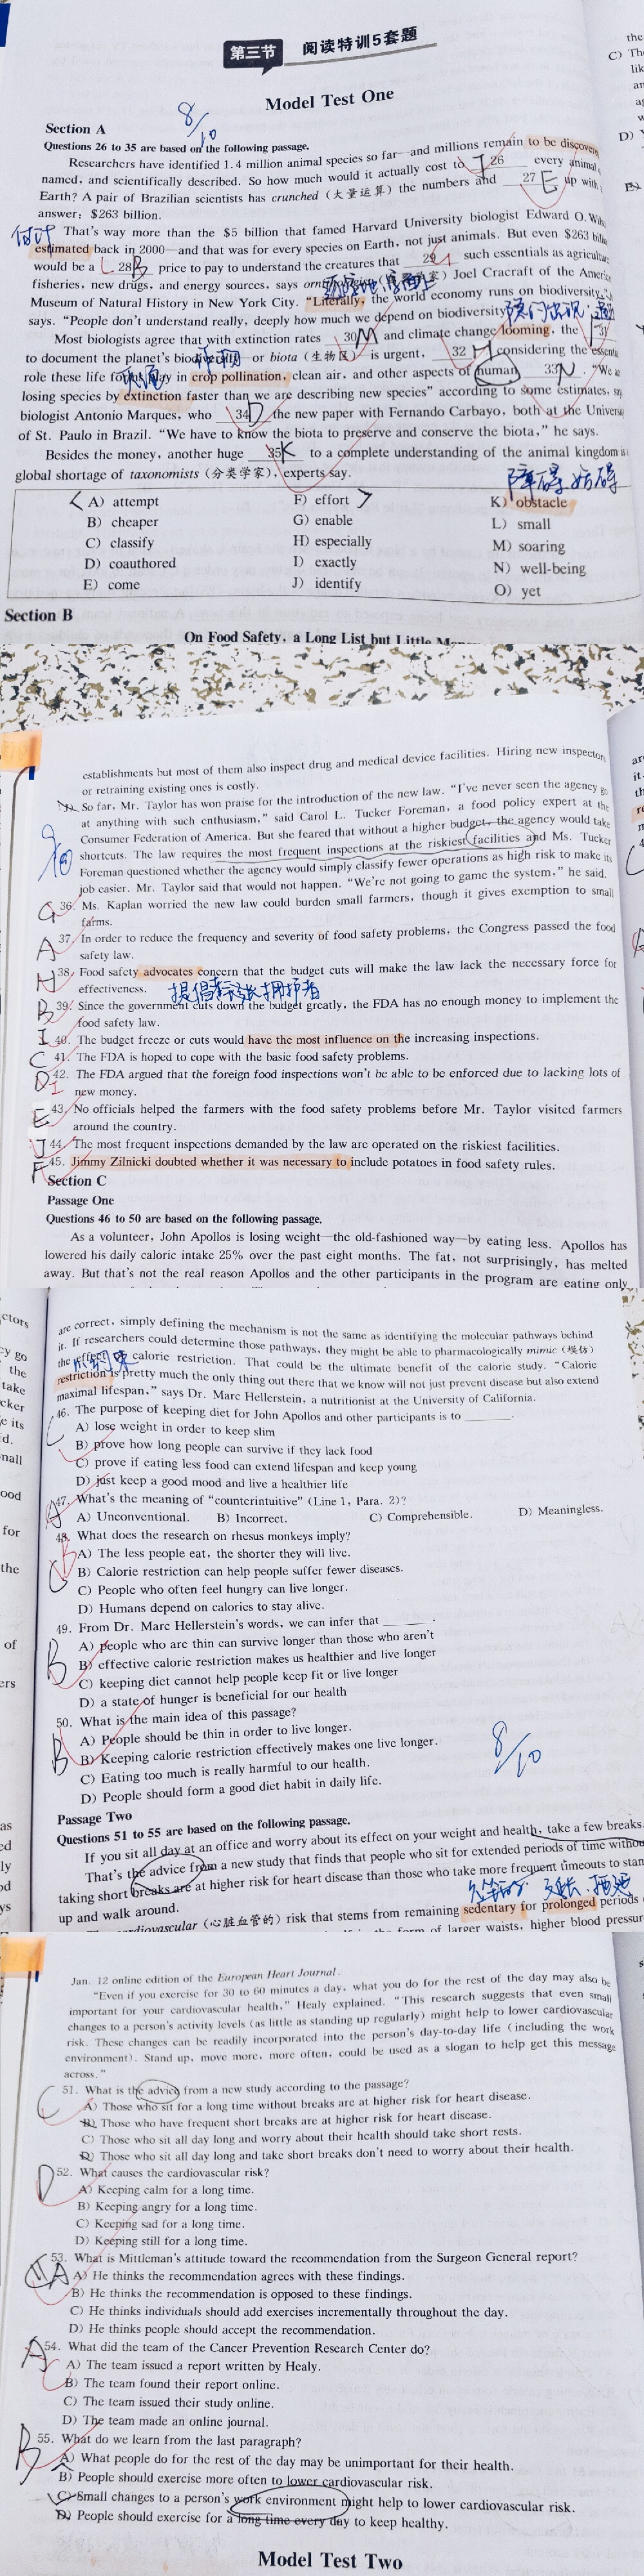 第三节 阅读特训5套题
Model Test One
8/10
Section A
Questions 26 to 35 are based on the following passage.
Researchers have identified 1.4 million animal species so far—and millions remain to be discovered,
named, and scientifically described. So how much would it actually cost to J 26 every animal
Earth? A pair of Brazilian scientists has crunched (大量运算) the numbers and 27 E up with
answer: $263 billion.
That's way more than the $5 billion that famed Harvard University biologist Edward O. Wils
估计
estimated back in 2000—and that was for every species on Earth, not just animals. But even $263 billion
would be a 28 B price to pay to understand the creatures that 29 G such essentials as agriculture
fisheries, new drugs, and energy sources, says Joel Cracraft of the America
Museum of Natural History in New York City. "Literally, the world economy runs on biodiversity,"
says. "People don't understand really, deeply how much we depend on biodiversity
Most biologists agree that with extinction rates 30 M and climate change looming, the 31
to document the planet's biodiversity or biota (生物区) is urgent, 32 H considering the essential
role these life play in crop pollination, clean air, and other aspects of human 33 N. "We a
losing species by extinction faster than we are describing new species" according to some estimates, say
biologist Antonio Marques, who 34 D the new paper with Fernando Carbayo, both at the Univers
of St. Paulo in Brazil. "We have to know the biota to preserve and conserve the biota," he says.
Besides the money, another huge 35 K to a complete understanding of the animal kingdom is
global shortage of taxonomists (分类学家), experts say.
障碍 妨碍
A) attempt F) effort K) obstacle
B) cheaper G) enable L) small
C) classify H) especially M) soaring
D) coauthored I) exactly N) well-being
E) come J) identify O) yet
Section B
On Food Safety, a Long List but Little Mon
establishments but most of them also inspect drug and medical device facilities. Hiring new inspectors
or retraining existing ones is costly.
J) So far, Mr. Taylor has won praise for the introduction of the new law. "I've never seen the agency go
at anything with such enthusiasm," said Carol L. Tucker Foreman, a food policy expert at the
Consumer Federation of America. But she feared that without a higher budget, the agency would take
shortcuts. The law requires the most frequent inspections at the riskiest facilities and Ms. Tucker
Foreman questioned whether the agency would simply classify fewer operations as high risk to make its
job easier. Mr. Taylor said that would not happen. "We're not going to game the system," he said.
G 36. Ms. Kaplan worried the new law could burden small farmers, though it gives exemption to small
farms.
A 37. In order to reduce the frequency and severity of food safety problems, the Congress passed the food
safety law.
H 38. Food safety advocates concern that the budget cuts will make the law lack the necessary force for
effectiveness. 提倡 拥护者
B 39. Since the government cuts down the budget greatly, the FDA has no enough money to implement the
food safety law.
I 40. The budget freeze or cuts would have the most influence on the increasing inspections.
C 41. The FDA is hoped to cope with the basic food safety problems.
D I 42. The FDA argued that the foreign food inspections won't be able to be enforced due to lacking lots of
new money.
E 43. No officials helped the farmers with the food safety problems before Mr. Taylor visited farmers
around the country.
J 44. The most frequent inspections demanded by the law are operated on the riskiest facilities.
F 45. Jimmy Zilnicki doubted whether it was necessary to include potatoes in food safety rules.
Section C
Passage One
Questions 46 to 50 are based on the following passage.
As a volunteer, John Apollos is losing weight—the old-fashioned way—by eating less. Apollos has
lowered his daily caloric intake 25% over the past eight months. The fat, not surprisingly, has melted
away. But that's not the real reason Apollos and the other participants in the program are eating only
are correct, simply defining the mechanism is not the same as identifying the molecular pathways behind
it. If researchers could determine those pathways, they might be able to pharmacologically mimic (模仿)
the effect of calorie restriction. That could be the ultimate benefit of the calorie study. "Calorie
restriction is pretty much the only thing out there that we know will not just prevent disease but also extend
maximal lifespan," says Dr. Marc Hellerstein, a nutritionist at the University of California.
C 46. The purpose of keeping diet for John Apollos and other participants is to ______.
A) lose weight in order to keep slim
B) prove how long people can survive if they lack food
C) prove if eating less food can extend lifespan and keep young
D) just keep a good mood and live a healthier life
A 47. What's the meaning of "counterintuitive" (Line 1, Para. 2)?
A) Unconventional. B) Incorrect. C) Comprehensible. D) Meaningless.
C B 48. What does the research on rhesus monkeys imply?
A) The less people eat, the shorter they will live.
B) Calorie restriction can help people suffer fewer diseases.
C) People who often feel hungry can live longer.
D) Humans depend on calories to stay alive.
B 49. From Dr. Marc Hellerstein's words, we can infer that ______.
A) people who are thin can survive longer than those who aren't
B) effective calorie restriction makes us healthier and live longer
C) keeping diet cannot help people keep fit or live longer
D) a state of hunger is beneficial for our health
B 50. What is the main idea of this passage?
A) People should be thin in order to live longer.
B) Keeping calorie restriction effectively makes one live longer.
C) Eating too much is really harmful to our health.
D) People should form a good diet habit in daily life.
8/10
Passage Two
Questions 51 to 55 are based on the following passage.
If you sit all day at an office and worry about its effect on your weight and health, take a few breaks.
That's the advice from a new study that finds that people who sit for extended periods of time without
taking short breaks are at higher risk for heart disease than those who take more frequent timeouts to stan
up and walk around.
cardiovascular (心脏血管的) risk that stems from remaining sedentary for prolonged periods
in the form of larger waists, higher blood pressur
Jan. 12 online edition of the European Heart Journal.
"Even if you exercise for 30 to 60 minutes a day, what you do for the rest of the day may also be
important for your cardiovascular health," Healy explained. "This research suggests that even small
changes to a person's activity levels (as little as standing up regularly) might help to lower cardiovascular
risk. These changes can be readily incorporated into the person's day-to-day life (including the work
environment). Stand up, move more, more often, could be used as a slogan to help get this message
across."
C 51. What is the advice from a new study according to the passage?
A) Those who sit for a long time without breaks are at higher risk for heart disease.
B) Those who have frequent short breaks are at higher risk for heart disease.
C) Those who sit all day long and worry about their health should take short rests.
D) Those who sit all day long and take short breaks don't need to worry about their health.
D 52. What causes the cardiovascular risk?
A) Keeping calm for a long time.
B) Keeping angry for a long time.
C) Keeping sad for a long time.
D) Keeping still for a long time.
A 53. What is Mittleman's attitude toward the recommendation from the Surgeon General report?
A) He thinks the recommendation agrees with these findings.
B) He thinks the recommendation is opposed to these findings.
C) He thinks individuals should add exercises incrementally throughout the day.
D) He thinks people should accept the recommendation.
A C 54. What did the team of the Cancer Prevention Research Center do?
A) The team issued a report written by Healy.
B) The team found their report online.
C) The team issued their study online.
D) The team made an online journal.
B 55. What do we learn from the last paragraph?
A) What people do for the rest of the day may be unimportant for their health.
B) People should exercise more often to lower cardiovascular risk.
C) Small changes to a person's work environment might help to lower cardiovascular risk.
D) People should exercise for a long time every day to keep healthy.
Model Test Two